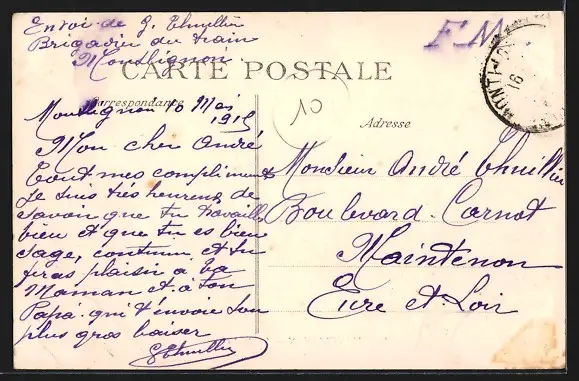 Envoi de G. Thuillier
Brigadier du train
Montlignon
F.M.
CARTE POSTALE
Correspondance
Adresse
10
MONTLIGNON
16
Montlignon 16 Mai
1915
Mon cher André
Tout mes compliments
je suis très heureux de
savoir que tu travaille
bien et que tu es bien
sage, continue et tu
feras plaisir a ta
Maman et a ton
Papa qui t'envoie son
plus gros baiser
GThuillier
Monsieur André Thuillier
Boulevard Carnot
Maintenon
Eure et Loir